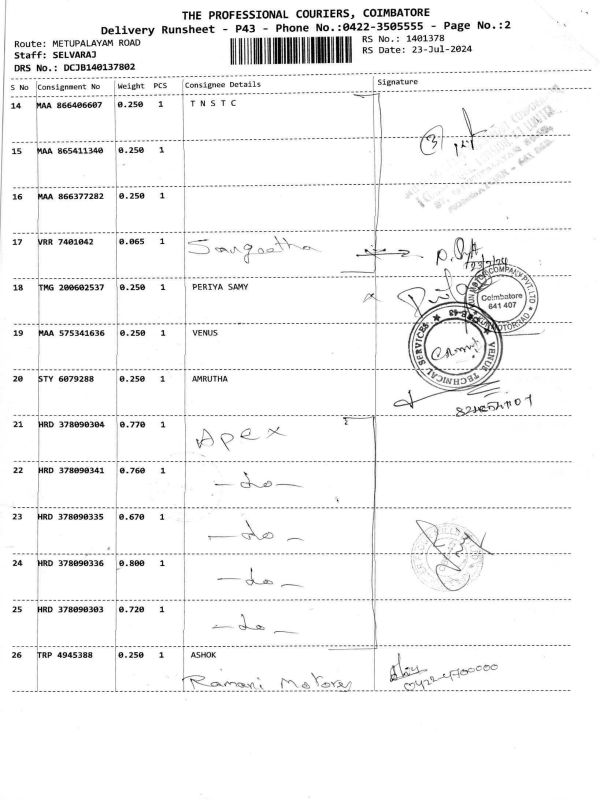 THE PROFESSIONAL COURIERS, COIMBATORE
Delivery Runsheet - P43 - Phone No.:0422-3505555 - Page No.:2
Route: METUPALAYAM ROAD
RS No.: 1401378
Staff: SELVARAJ
RS Date: 23-Jul-2024
DRS No.: DCJB140137802
S No Consignment No Weight PCS Consignee Details Signature
14 MAA 866406607 0.250 1 T N S T C
3
15 MAA 865411340 0.250 1
16 MAA 866377282 0.250 1
17 VRR 7401042 0.065 1 Sangeetha
23/7/24
18 TMG 200602537 0.250 1 PERIYA SAMY
Coimbatore
641 407
19 MAA 575341636 0.250 1 VENUS
TECHNICAL SERVICES
20 STY 6079288 0.250 1 AMRUTHA
21 HRD 378090304 0.770 1 Apex
22 HRD 378090341 0.760 1 -do-
23 HRD 378090335 0.670 1 -do-
24 HRD 378090336 0.800 1 -do-
25 HRD 378090303 0.720 1 -do-
26 TRP 4945388 0.250 1 ASHOK
Ramani Motores